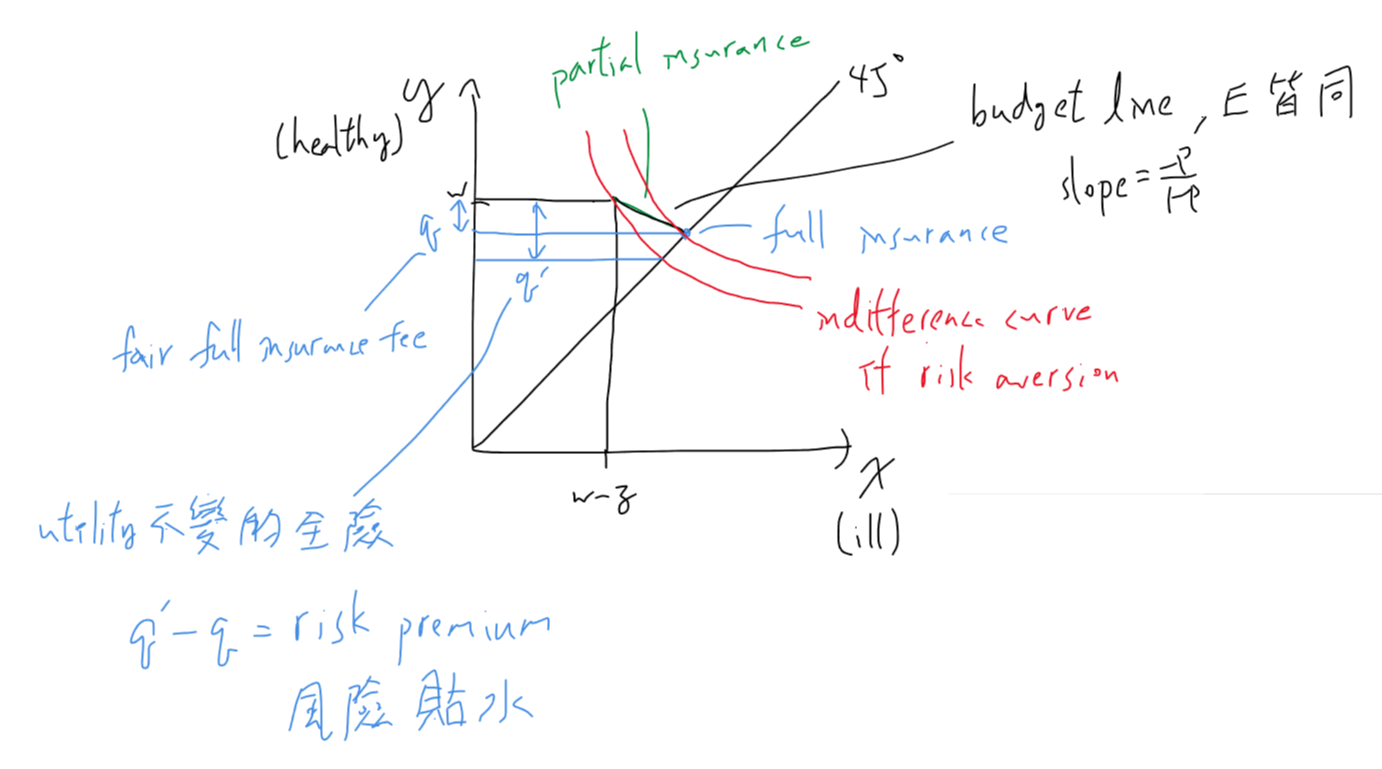 partial insurance
y
(healthy)
45°
budget line, E 皆同
slope = -P/1-P
w
q
q'
full insurance
fair full insurance fee
indifference curve
if risk aversion
w-z
x
(ill)
utility不變的全險
q'-q = risk premium
風險貼水